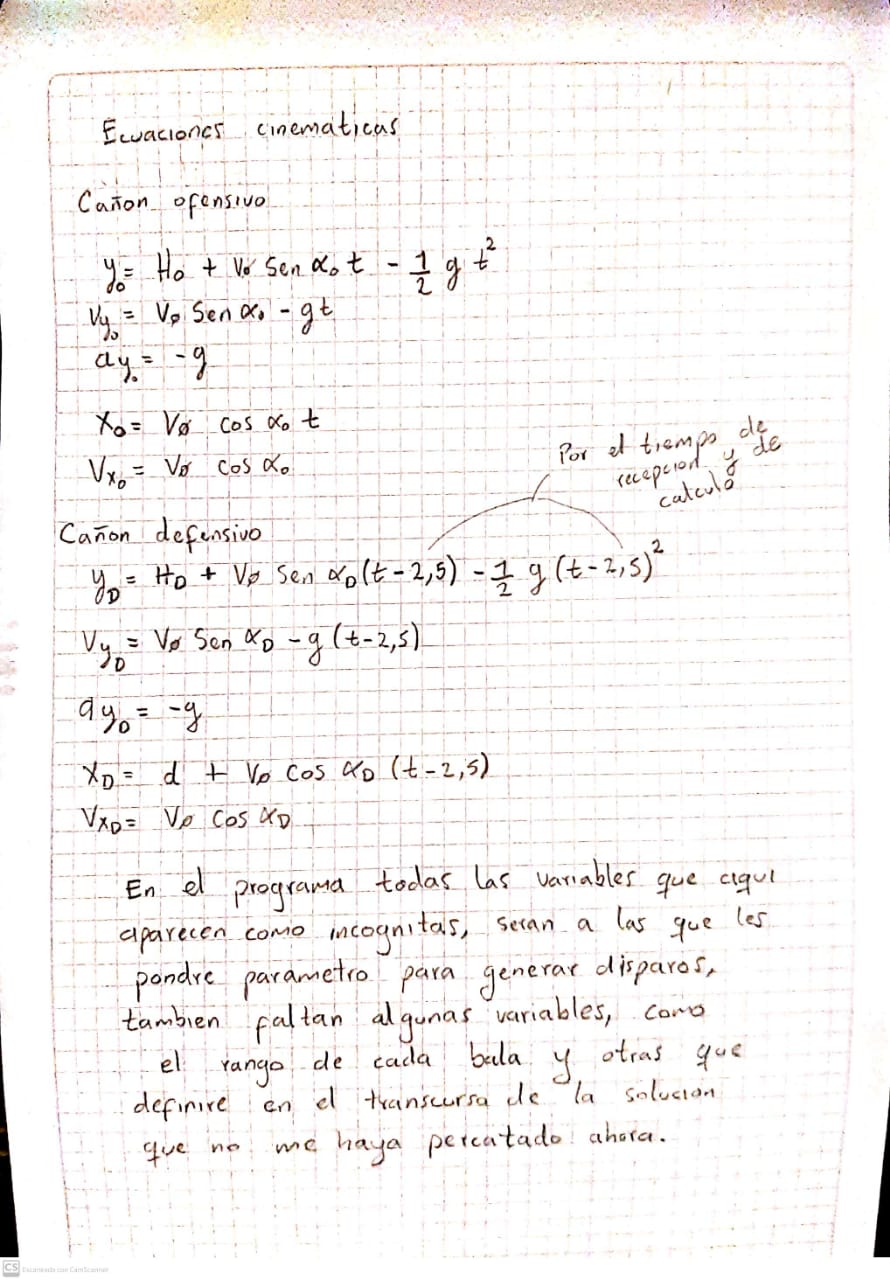 Ecuaciones cinematicas
Cañon ofensivo
y₀ = H₀ + V₀ Sen α₀ t - 1/2 g t²
Vy₀ = V₀ Sen α₀ - gt
ay₀ = -g
X₀ = V₀ cos α₀ t
Vx₀ = V₀ cos α₀
Por el tiempo de
recepcion y de
calculo
Cañon defensivo
y_D = H_D + V₀ Sen α_D (t - 2,5) - 1/2 g (t - 2,5)²
Vy_D = V₀ Sen α_D - g (t - 2,5)
ay_D = -g
X_D = d + V₀ cos α_D (t - 2,5)
Vx_D = V₀ cos α_D
En el programa todas las variables que aqui
aparecen como incognitas, seran a las que les
pondre parametro para generar disparos,
tambien faltan algunas variables, como
el rango de cada bala y otras que
definire en el transcurso de la solucion
que no me haya percatado ahora.
CS Escaneado con CamScanner